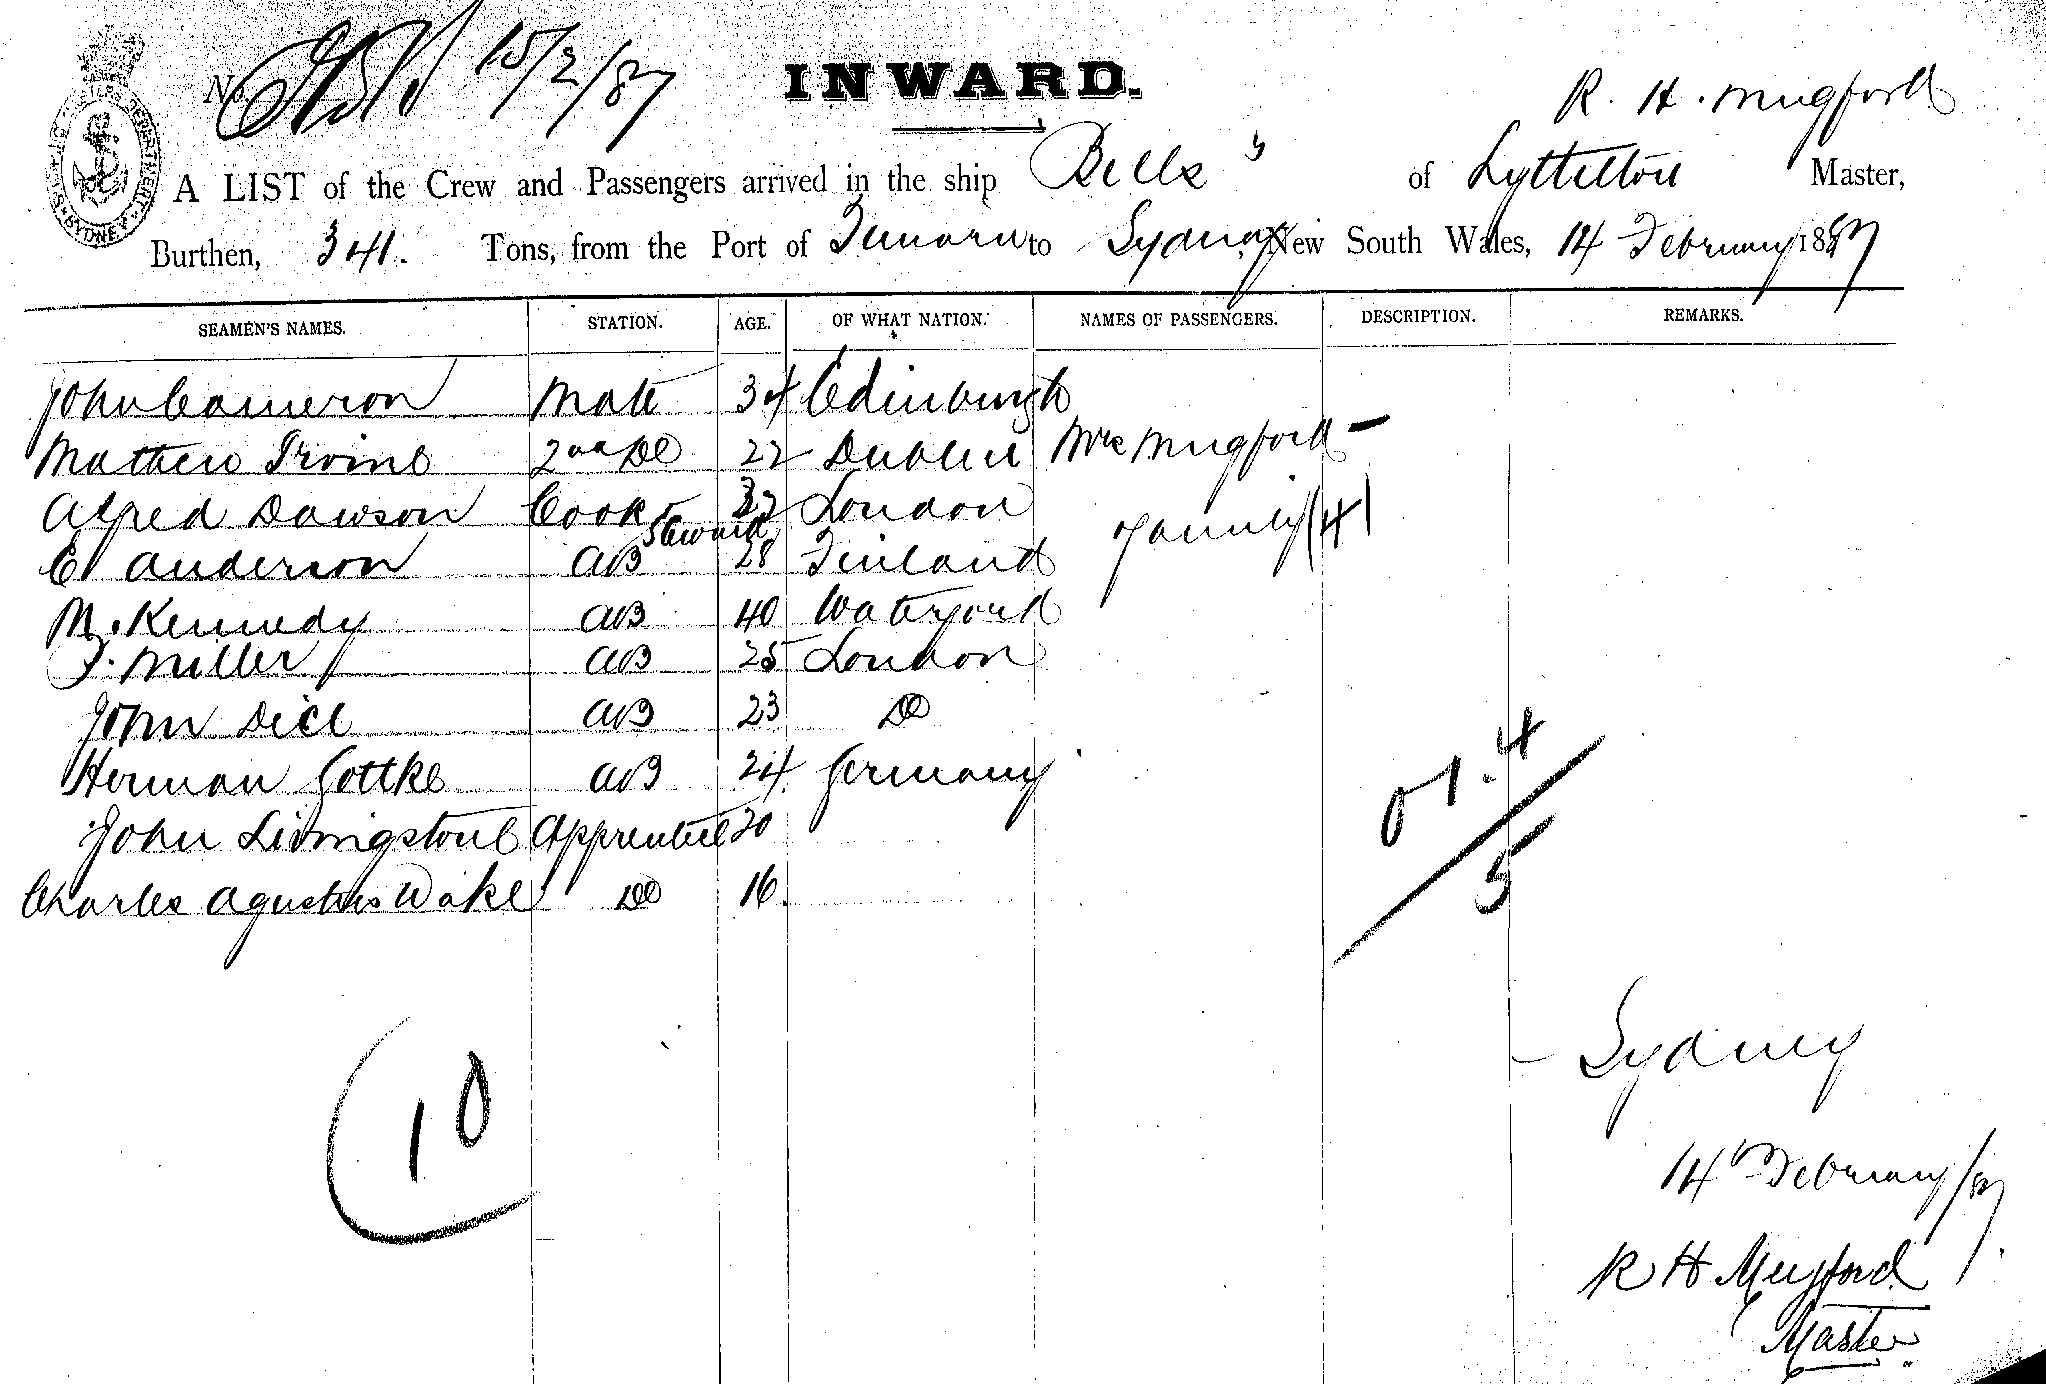 No 15/2/87
INWARD.
R. H. Mugford
A LIST of the Crew and Passengers arrived in the ship Bells of Lyttelton Master,
Burthen, 341. Tons, from the Port of to Sydney New South Wales, 14 February 1887
SEAMEN'S NAMES. STATION. AGE. OF WHAT NATION. NAMES OF PASSENGERS. DESCRIPTION. REMARKS.
John Cameron Mate 34 Edinburgh
Mathew Irvine 2nd Do 22 Dublin Mrs Mugford
Alfred Dawson Cook Steward London
family (4)
C Anderson AB 28 Finland
M. Kennedy AB 40 Waterford
J. Miller AB 25 London
John Dick AB 23 Do
Herman Gottke AB 24 Germany
John Livingstone Apprentice 20
Charles Agustus Wake Do 16.
4
5
10
Sydney
14 February/87
R H Mugford
Master